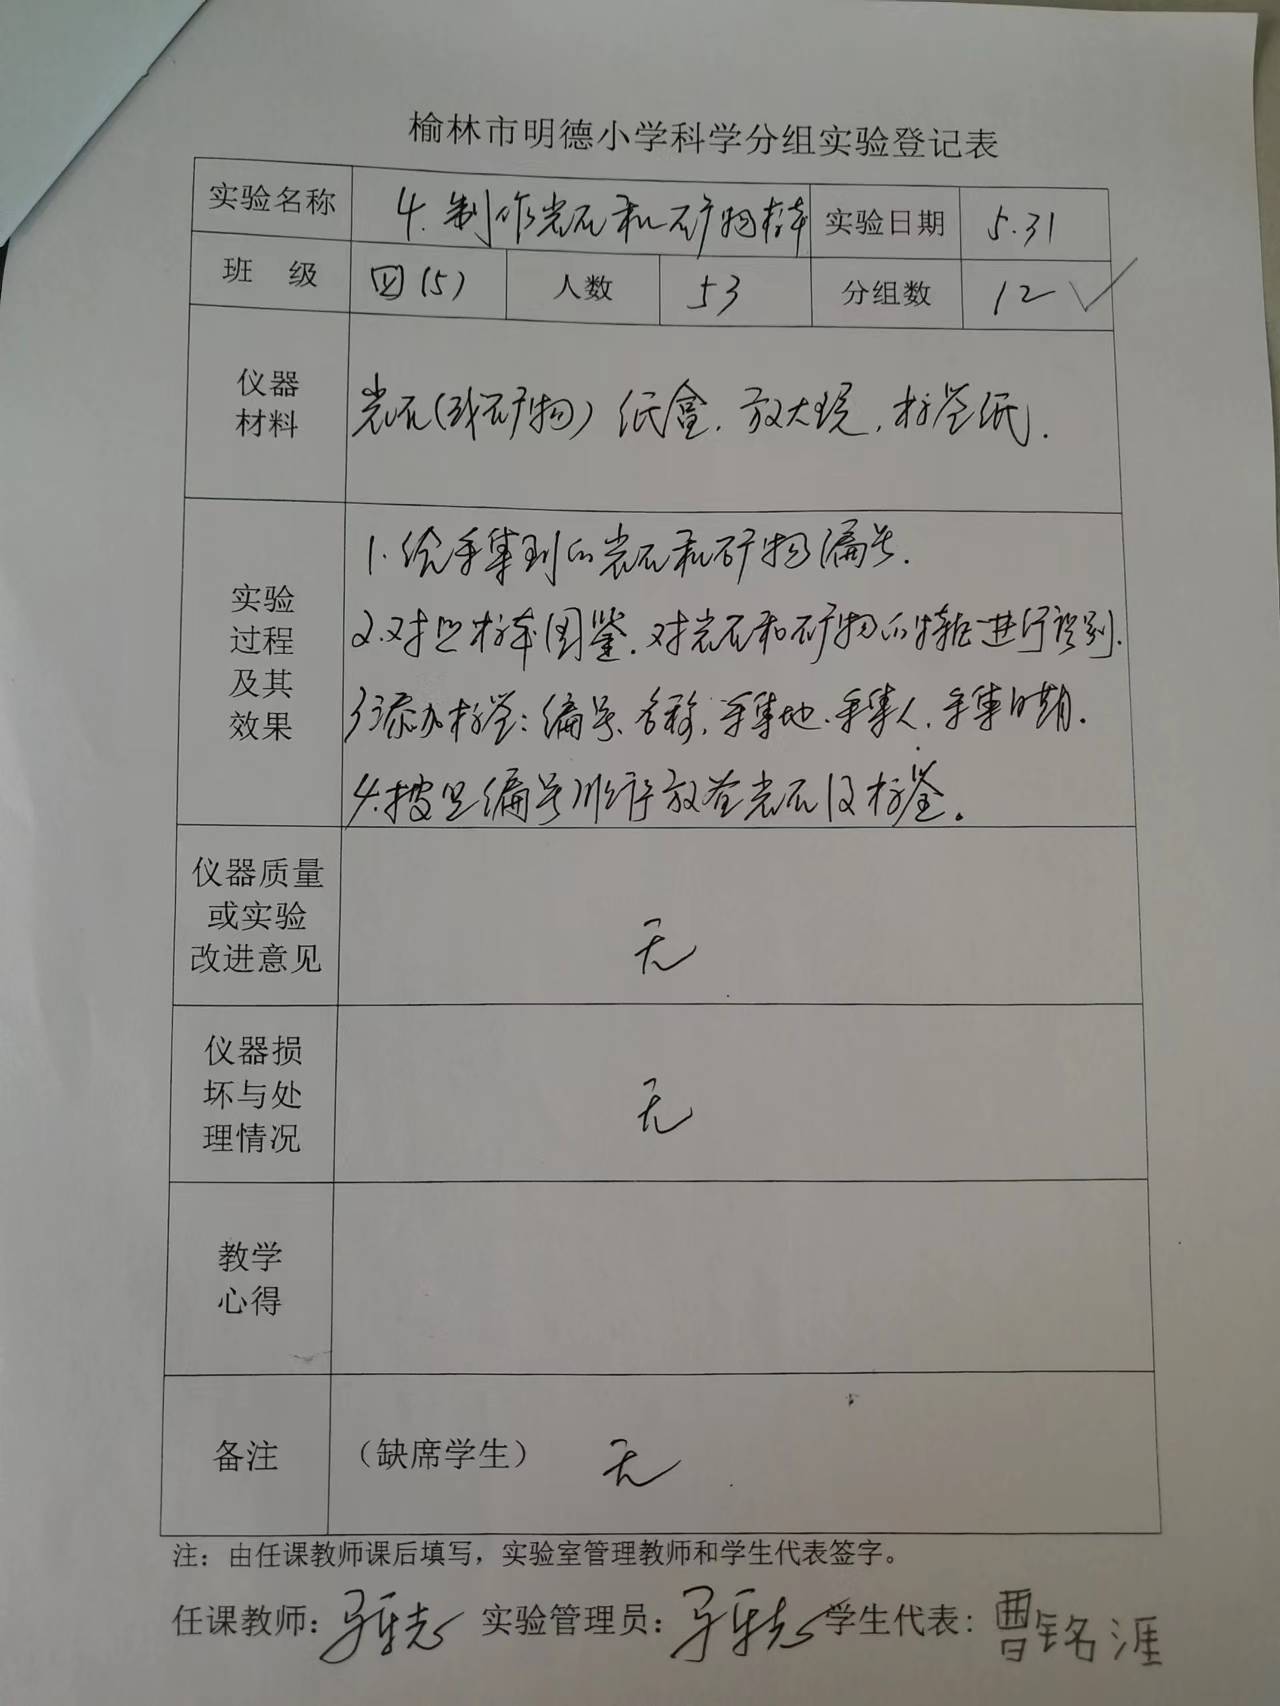 榆林市明德小学科学分组实验登记表
实验名称 4.制作岩石和矿物标本 实验日期 5.31
班 级 四(5) 人数 53 分组数 12
仪器
材料
岩石(或矿物) 纸盒, 放大镜, 标签纸.
实验
过程
及其
效果
1.给采集到的岩石和矿物编号.
2.对照标本图鉴, 对岩石和矿物的特征进行识别.
3.添加标签: 编号、名称, 采集地、采集人, 采集日期.
4.按照编号顺序放全岩石及标签。
仪器质量
或实验
改进意见
无
仪器损
坏与处
理情况
无
教学
心得
备注 (缺席学生) 无
注: 由任课教师课后填写, 实验室管理教师和学生代表签字。
任课教师: 实验管理员: 学生代表: 曹铭涯